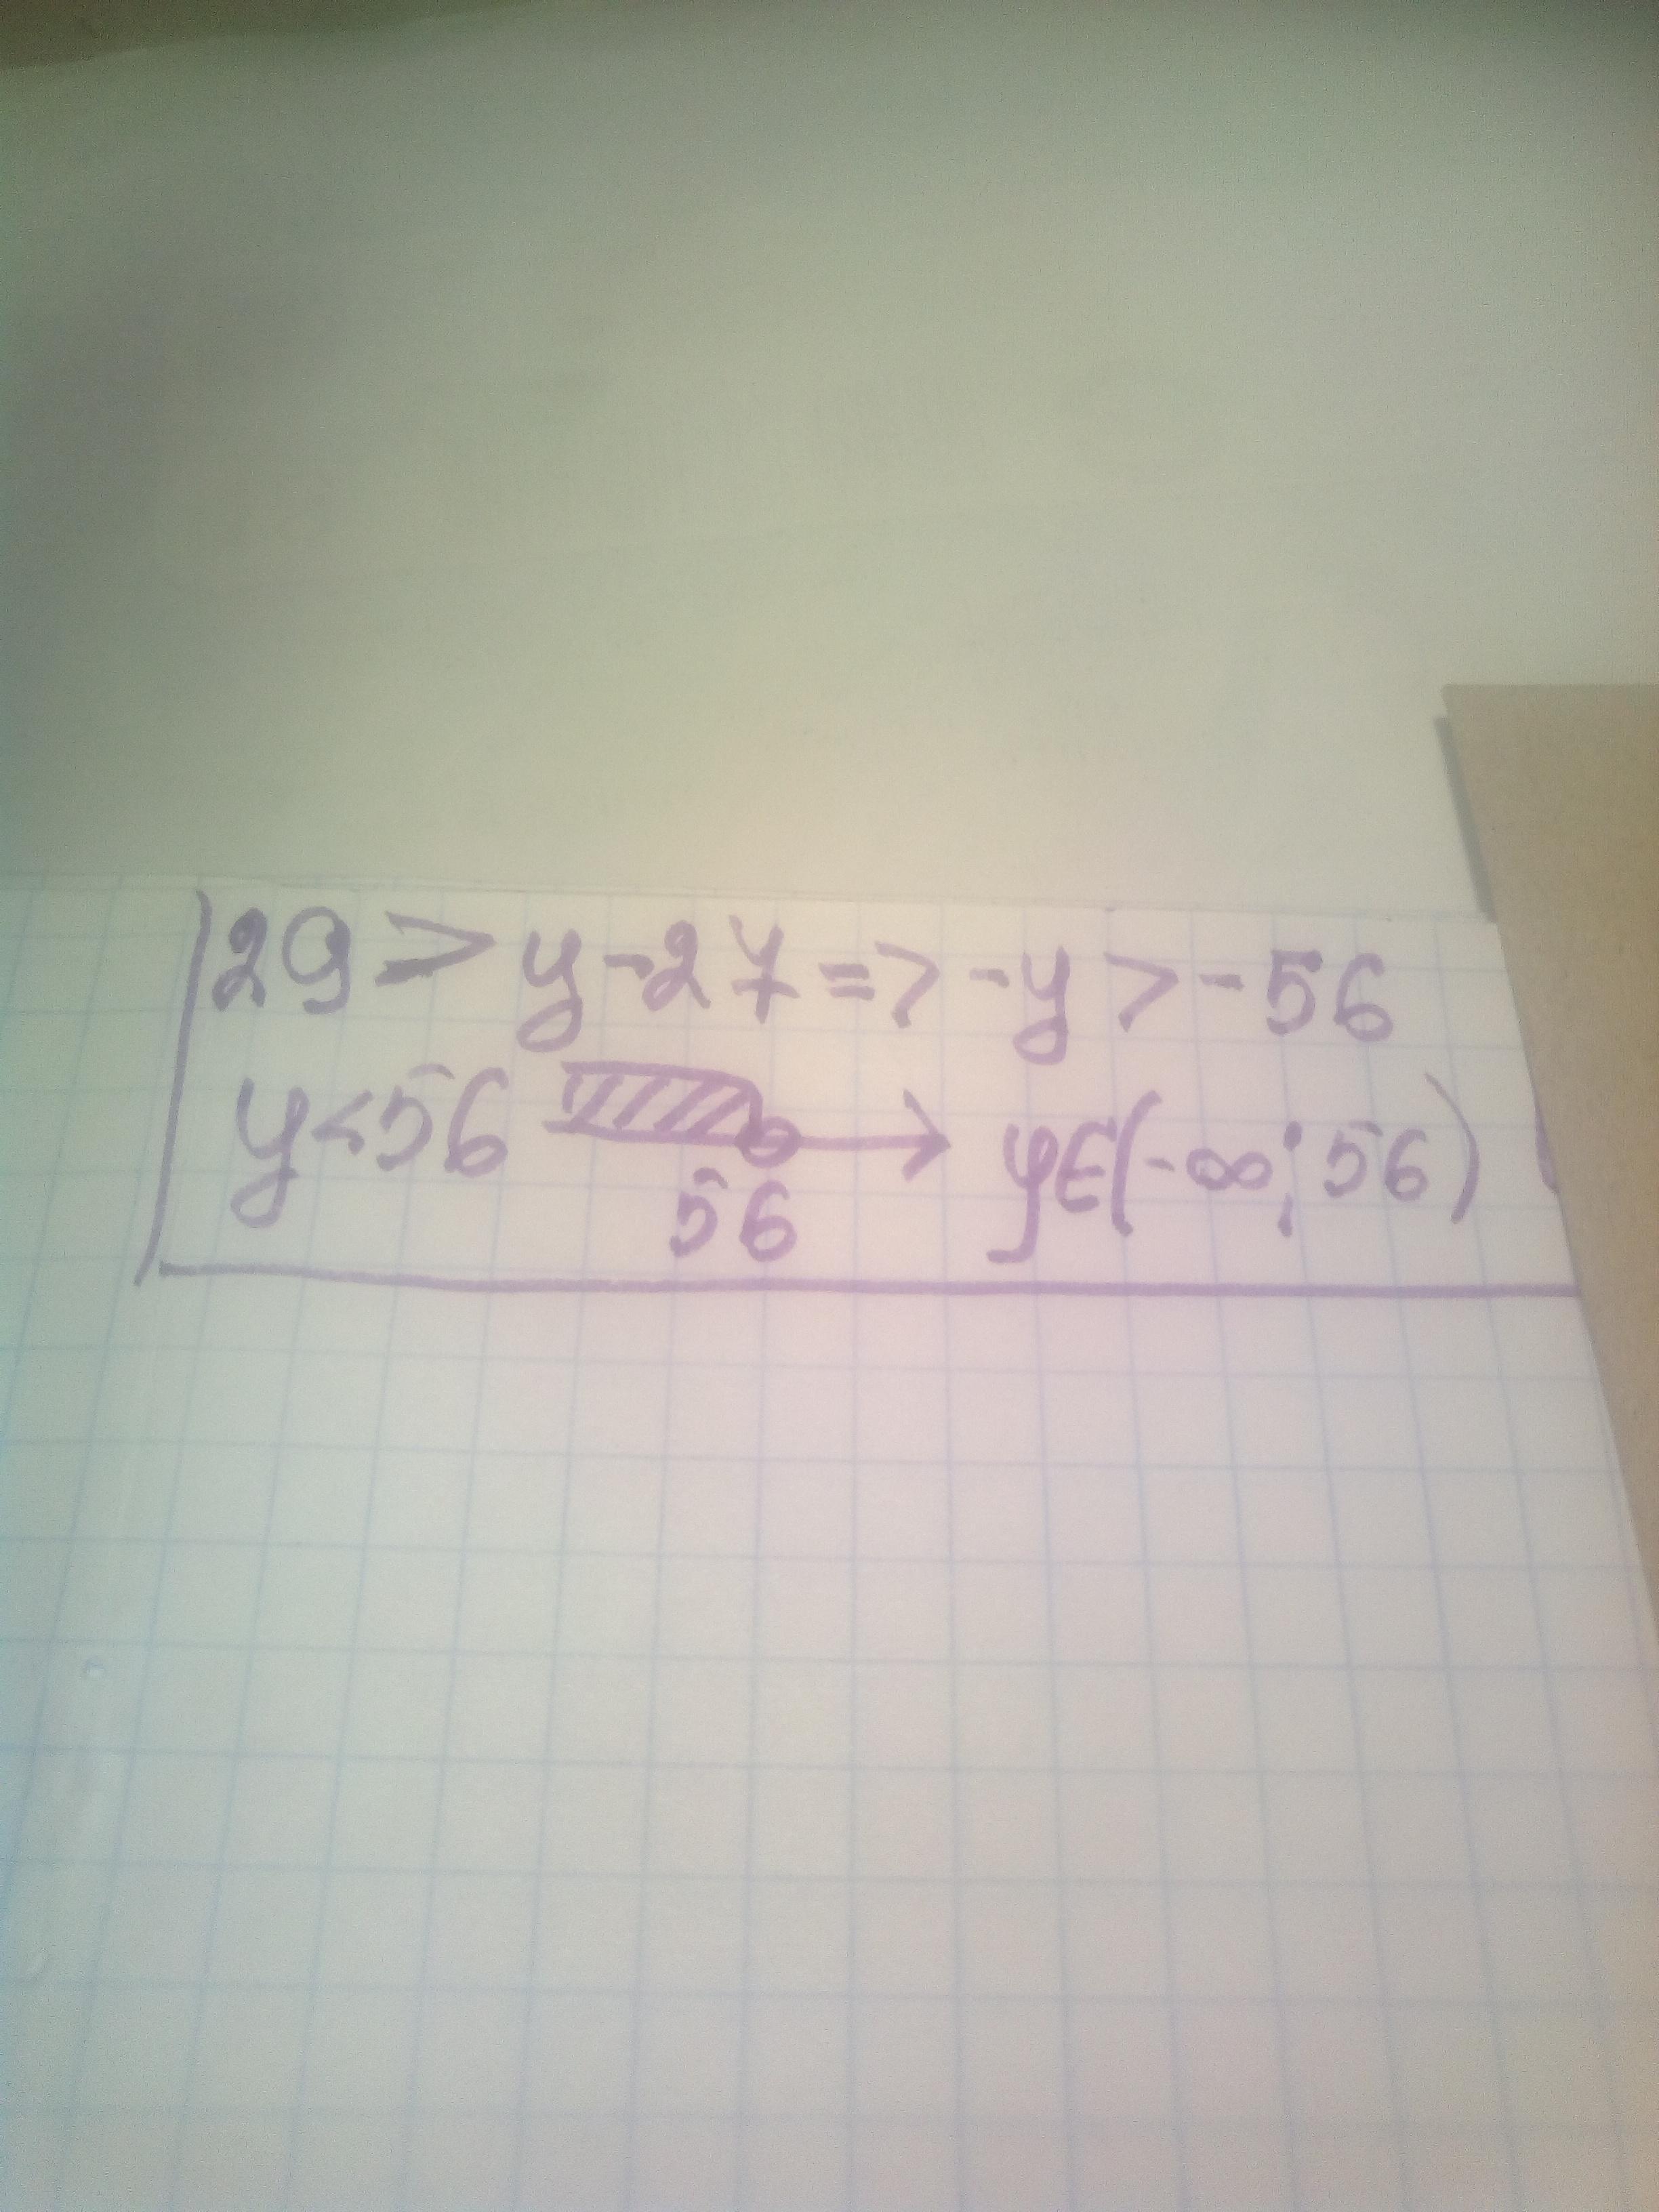 29 > y - 27 => -y > -56
y < 56 56 y ∈ (-∞; 56)